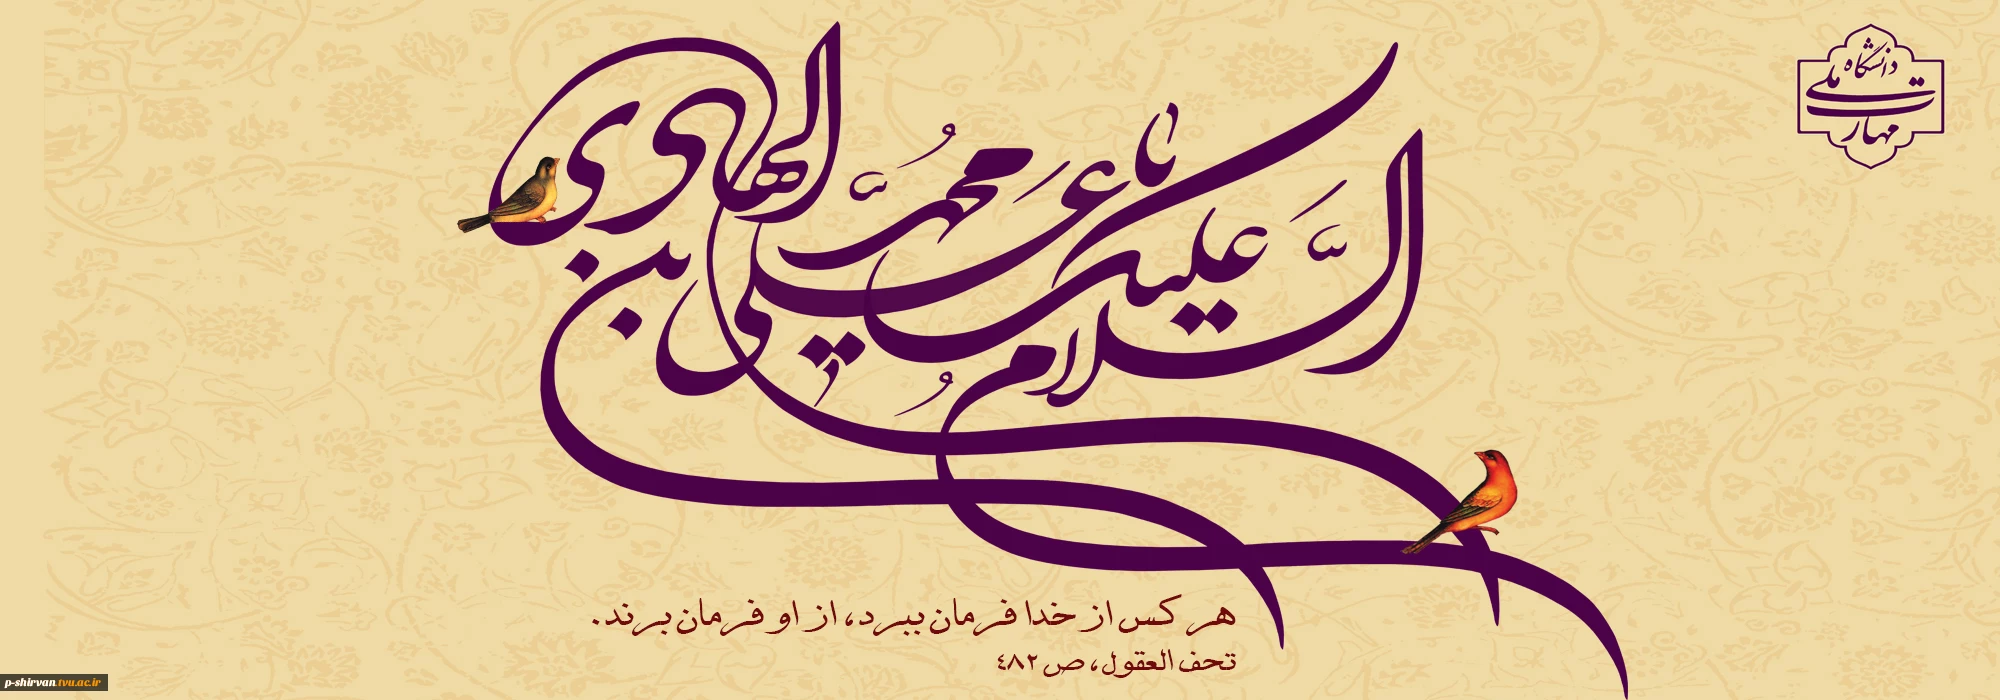 السلام علیک یا علی بن محمد الهادی
دانشگاه
ملی
مهارت
هر کس از خدا فرمان ببرد، از او فرمان برند.
تحف العقول، ص ۴۸۲
p-shirvan.tvu.ac.ir